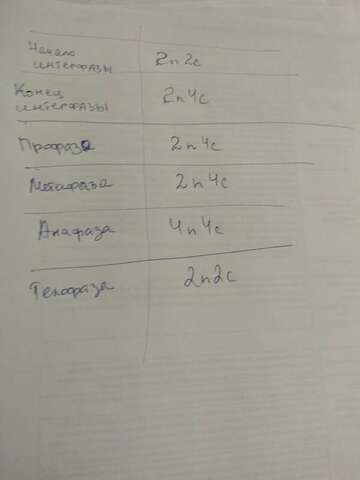 Начало интерфазы 2n2c
Конец интерфазы 2n4c
Профаза 2n4c
Метафаза 2n4c
Анафаза 4n4c
Телофаза 2n2c